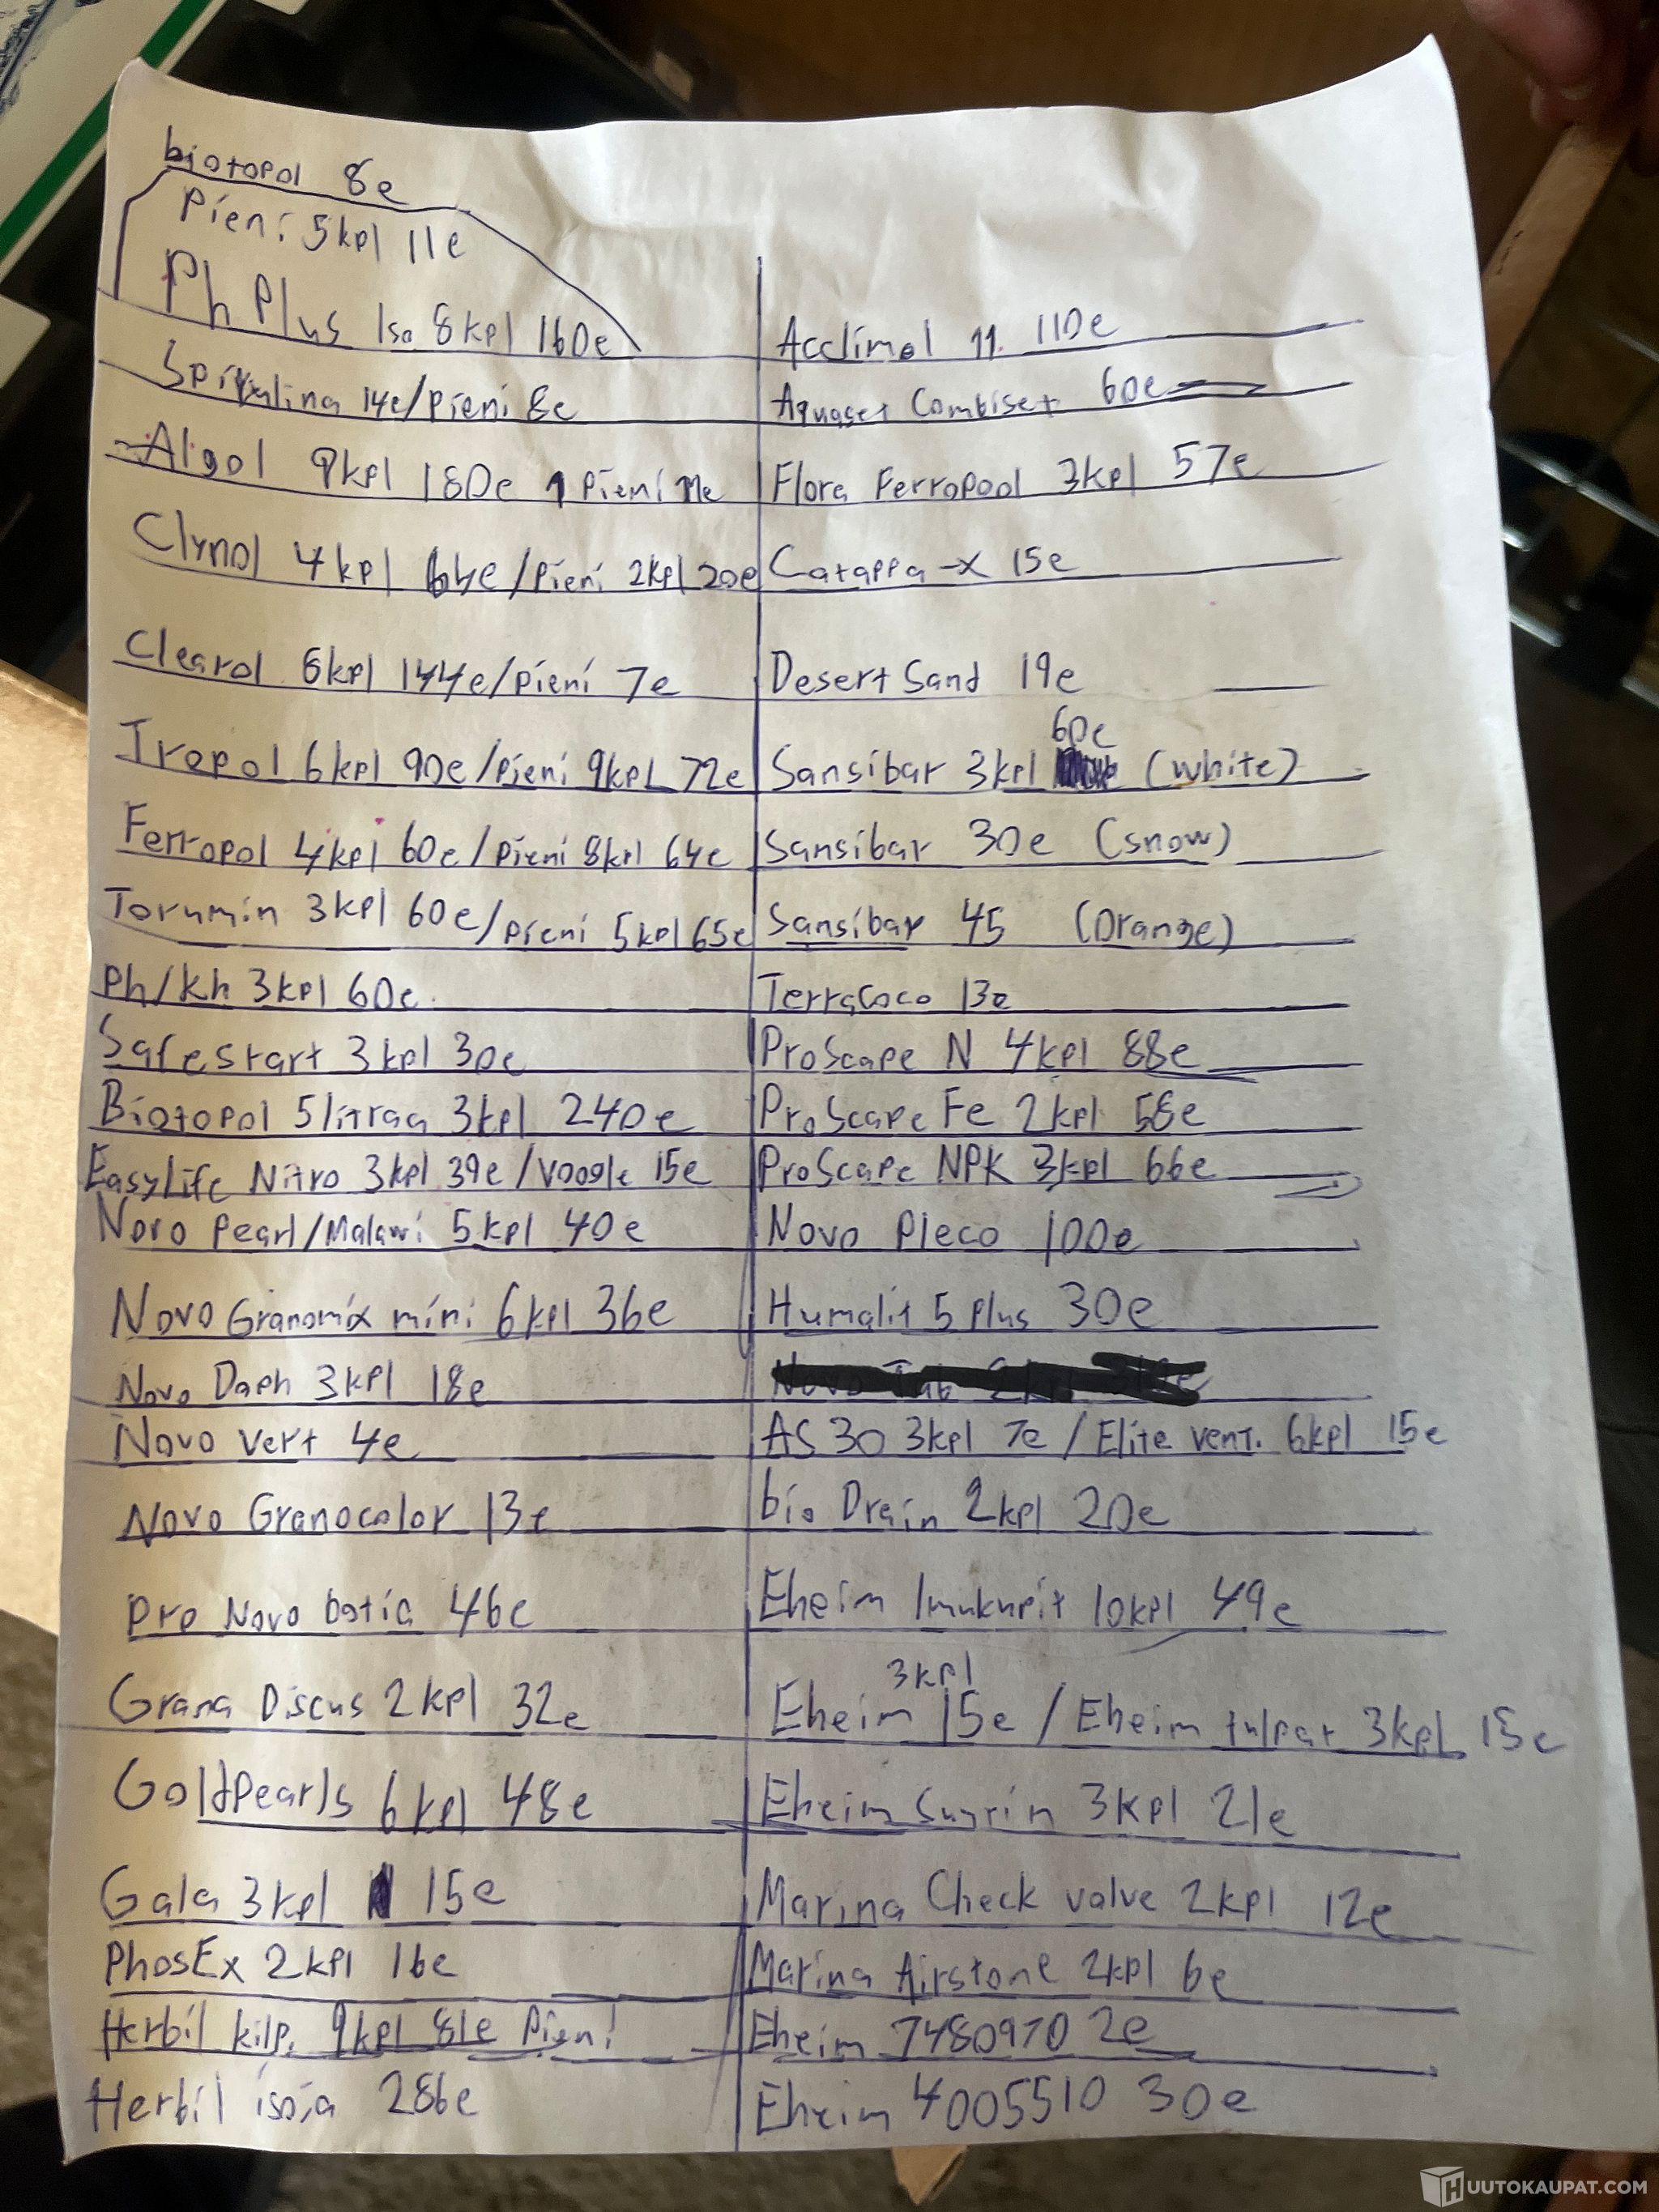 biotopol 8e
Pieni 5kpl 11e
Ph Plus Iso 8kpl 160e
Spirulina 14e/pieni 8e
Algol 9kpl 180e 1 pieni 11e
Clynol 4kpl 64e/pieni 2kpl 20e
Clearol 8kpl 144e/pieni 7e
Tropol 6kpl 90e/pieni 9kpl 72e
Ferropol 4kpl 60e/pieni 8kpl 64e
Torumin 3kpl 60e/pieni 5kpl 65e
Ph/Kh 3kpl 60e
Safestart 3kpl 30e
Biotopol 5litraa 3kpl 240e
EasyLife Nitro 3kpl 39e/Voogle 15e
Novo Pearl/Malawi 5kpl 40e
Novo Granomix mini 6kpl 36e
Novo Daph 3kpl 18e
Novo vert 4e
Novo Granocolor 13e
Pro Novo botia 46e
Grana Discus 2kpl 32e
GoldPearls 6kpl 48e
Gala 3kpl 15e
PhosEx 2kpl 16e
Herbil kilp. 9kpl 81e Pieni
Herbil isoja 286e
Acclimol 11. 110e
Aquaset Combiset 60e
Flora Ferropool 3kpl 57e
Catappa-X 15e
Desert Sand 19e
60e
Sansibar 3kpl (white)
Sansibar 30e (snow)
Sansibar 45 (Orange)
TerraCoco 13e
ProScape N 4kpl 88e
ProScape Fe 2kpl 58e
ProScape NPK 3kpl 66e
Novo Pleco 100e
Humalit 5 plus 30e
AS 30 3kpl 7e / Elite vent. 6kpl 15e
bio Drain 2kpl 20e
Eheim Imukupit 10kpl 49e
3kpl
Eheim 15e / Eheim tulpat 3kpl 15e
Eheim 3kpl 21e
Marina Check valve 2kpl 12e
Marina Airstone 2kpl 6e
Eheim 7480970 2e
Eheim 4005510 30e
HUUTOKAUPAT.COM